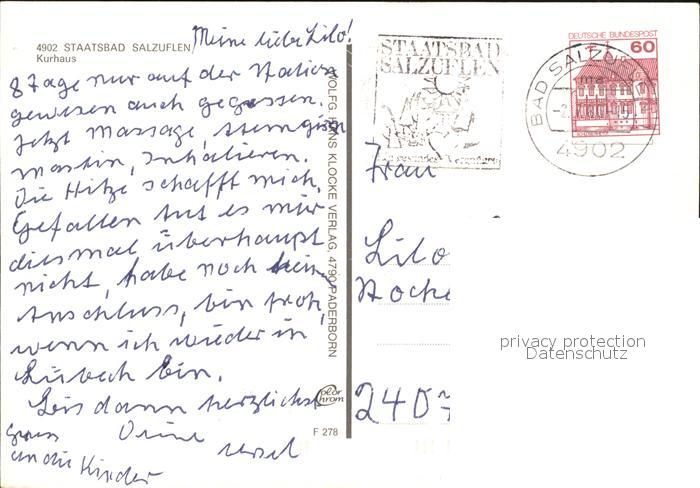 4902 STAATSBAD SALZUFLEN
Kurhaus
Meine liebe Lilo!
8 Tage nur auf der Station
gewesen auch gegessen.
Jetzt Massage,
Inhalieren.
Die Hitze schafft mich,
Gefallen tut es mir
diesmal überhaupt
nicht, habe noch keinen
Anschluss, bin froh,
wenn ich wieder in
Lübeck bin.
dann herzlichst
Deine
Gruss
an die Kinder
WOLFG. HANS KLOCKE VERLAG, 4790 PADERBORN
color
chrom
F 278
STAATSBAD
SALZUFLEN
DEUTSCHE BUNDESPOST
60
BAD SALZUFLEN
4902
Frau
Lilo
240
privacy protection
Datenschutz